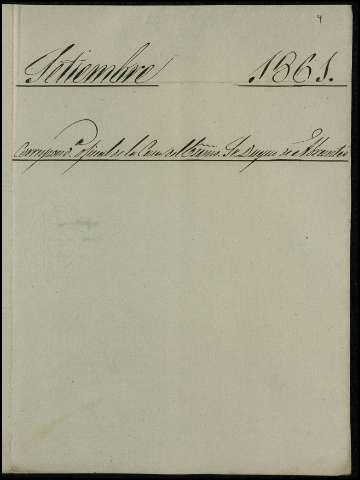 4
Setiembre 1861.
Correspond.ª oficial de la Casa del Excmo. Sr Duque de Abrantes